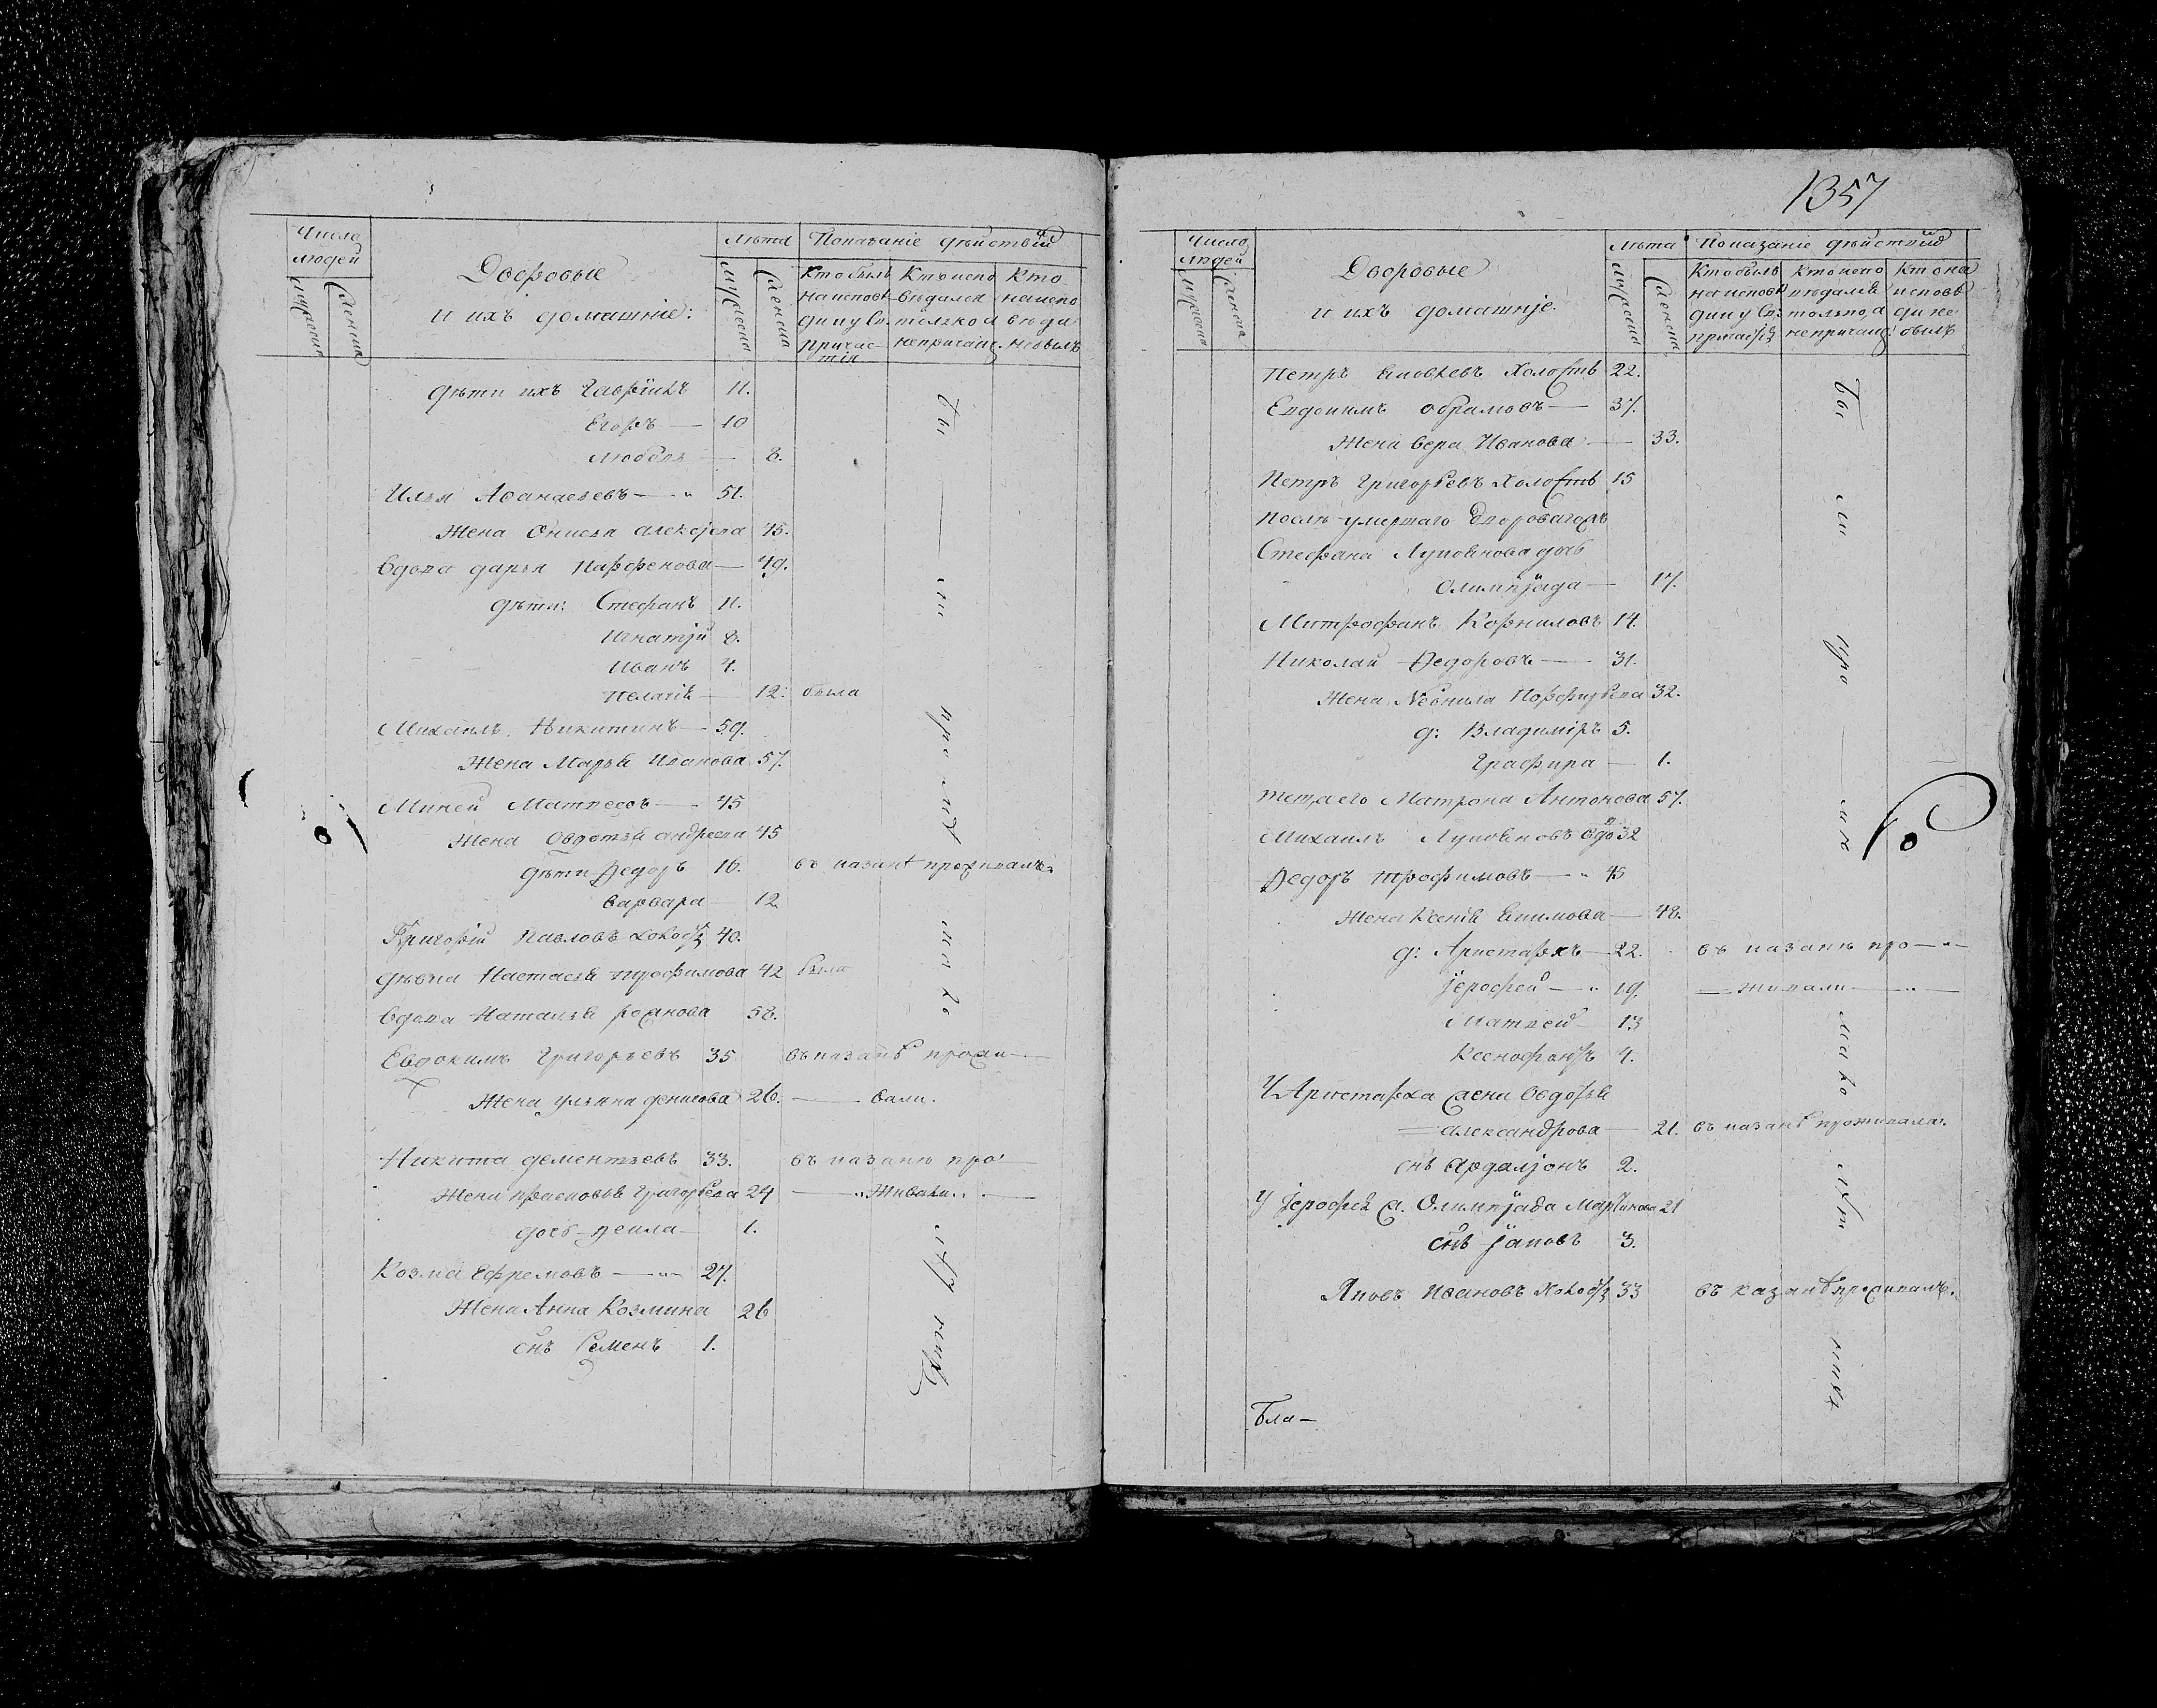 Число людей
мужеска
женска
Дворовые
и ихъ домашніе:
Лѣта
мужеска
женска
Показаніе дѣйствій
Кто былъ на исповѣди и у Св. причастія
Кто исповѣдался только а не причащ.
Кто на исповѣди не былъ
дѣти ихъ Гаврїилъ 11.
Егоръ — 10
Любовь — 8.
Илья Аѳанасьевъ — 51.
Жена Онисья алексјева 45.
Вдова дарья Парфенова — 49.
дѣти: Стефанъ 11.
Игнатјй 8.
Иванъ 4.
Пелагія — 12. была
Михаилъ Никитинъ — 59.
Жена Марья Иванова 57.
Миней Матвеевъ — 45
Жена Овдотья андреева 45
дѣти Ѳедоръ 16. въ казанѣ проживалъ.
варвара — 12.
Григорій Павловъ холостъ 40.
дѣвка Настасья трофимова 42 была
Вдова Наталья романова 58.
Евдокимъ Григорьевъ 35 въ казанѣ прожи—
Жена ульяна денисова 26. — вали.
Никита дементьевъ 33. въ казанѣ про—
Жена прасковья Григорьева 24 — живали.
дочь Ѳекла — 1.
Козма Ефремовъ — 27.
Жена Анна Козмина 26
снъ Семенъ 1.
бы — ли при
1357
Число людей
мужеска
женска
Дворовые
и ихъ домашнје.
Лѣта
мужеска
женска
Показаніе дѣйствій
Кто былъ на исповѣди и у Св: причастія
Кто исповѣдался только, а не причащ:
Кто на исповѣди не былъ
Петръ Яковлевъ Холостъ 22.
Евдокимъ обрамовъ — 37.
Жена вера Иванова — 33.
Петръ Григорьевъ Холостъ 15
После умершаго Двороваго
Стефана Лукоянова дочь
Олимпїада — 17.
Митрофанъ Корниловъ 14.
Николай Ѳедоровъ — 31.
Жена Неонила Порфирьева 32.
д: Владимїръ 5.
Графира — 1.
теща его Матрона Антонова 57.
Михаилъ Лукояновъ вдов 32
Ѳедоръ трофимовъ — 45
Жена Ксенія Екимова — 48.
д: Аристархъ — 22. въ казанѣ про—
Їерофей — 19. — живали —
Матвей — 13
Ксенофонтъ 4.
У Аристарха жена Овдотья
александрова — 21. въ казанѣ проживала.
снъ Ардалјонъ 2.
У Їерофея ж. Олимпїада Мартинова 21
снъ Їаковъ 3.
Яковъ Ивановъ Холостъ 33 въ казанѣ проживалъ.
бы ли про
мало
лѣт
Бла—